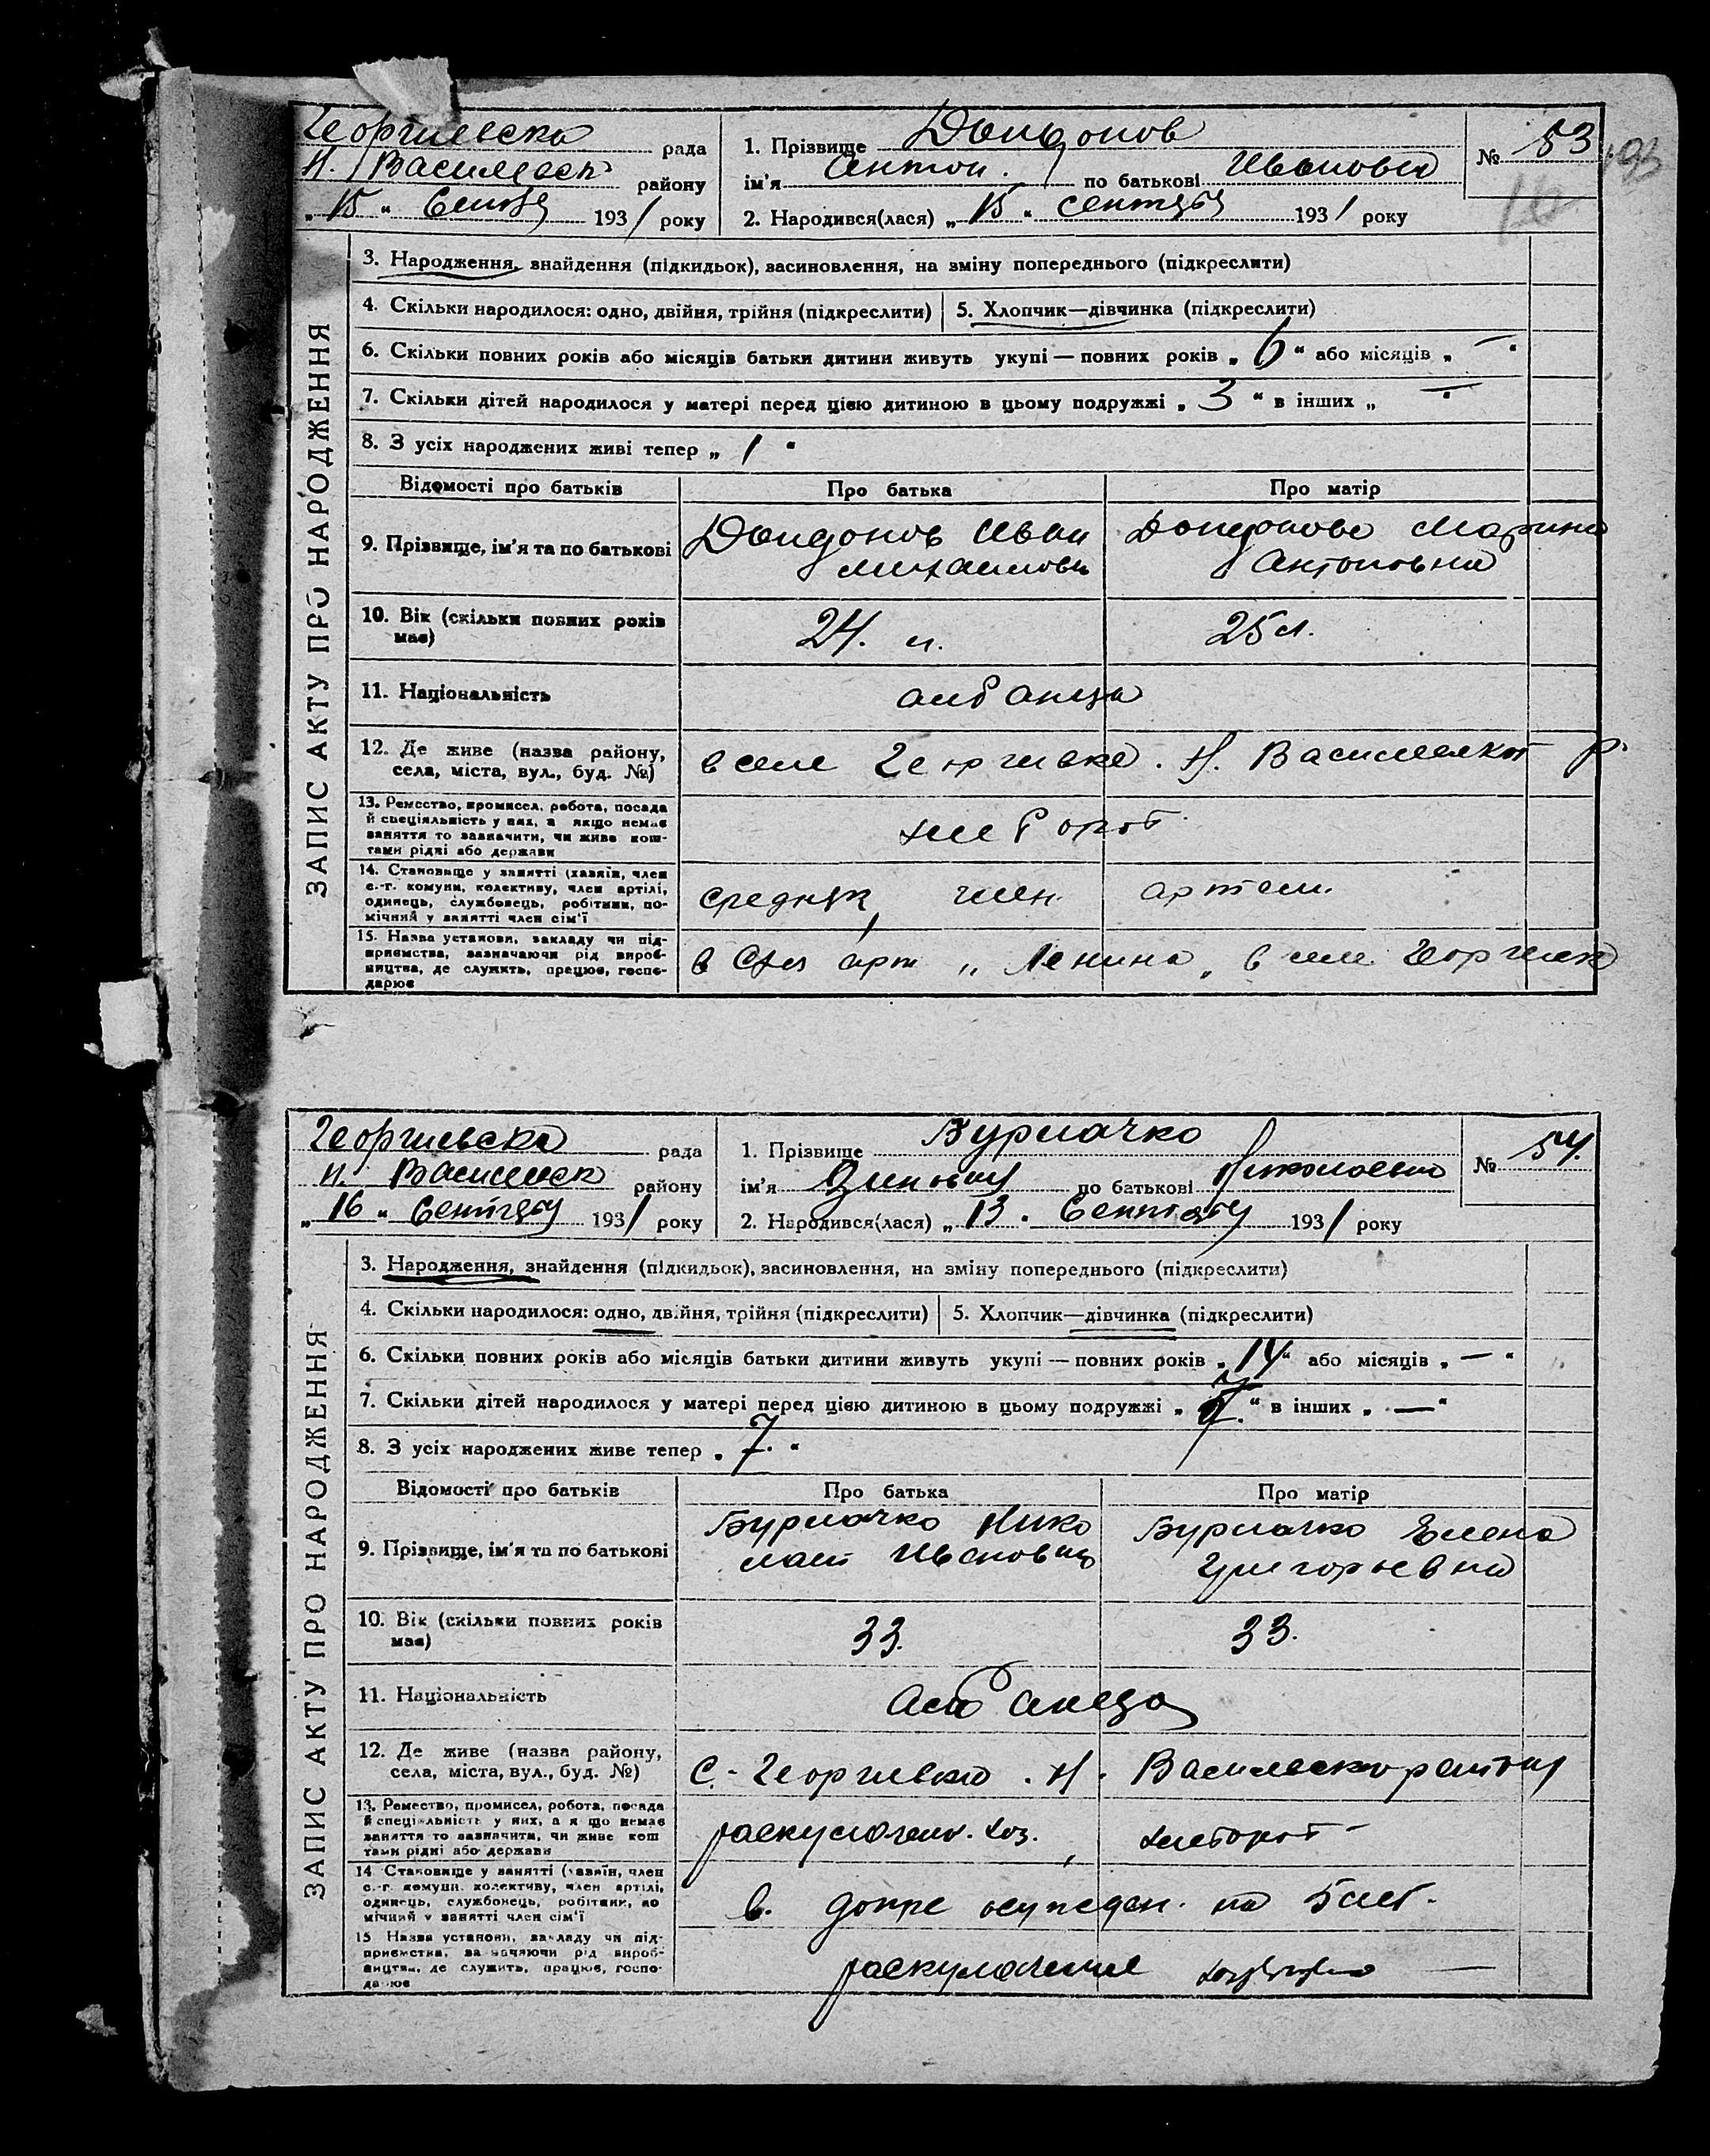 Георгиевска рада
Н. Василевск району
„ 15 “ Сентя 1931 року
1. Прізвище Дондонов
ім'я Антон. по батькові Иванович
2. Народився(лася) „ 15 “ сентября 1931 року
№ 53
193
ЗАПИС АКТУ ПРО НАРОДЖЕННЯ
3. Народження, знайдення (підкидьок), засиновлення, на зміну попереднього (підкреслити)
4. Скільки народилося: одно, двійня, трійня (підкреслити) 5. Хлопчик—дівчинка (підкреслити)
6. Скільки повних років або місяців батьки дитини живуть укупі — повних років „ 6 “ або місяців „ — “
7. Скільки дітей народилося у матері перед цією дитиною в цьому подружжі „ 3 “ в інших „ —
8. З усіх народжених живі тепер „ 1 “
Відомості про батьків Про батька Про матір
9. Прізвище, ім'я та по батькові
Дондонов Иван
Михаилович
Дондонова Марина
Антоновна
10. Вік (скільки повних років
має)
24. л.
25 л.
11. Національність
албанцы
12. Де живе (назва району,
села, міста, вул., буд. №)
в селе Георгиевке. Н. Василевкот р.
13. Ремество, промисел, робота, посада
й спеціяльність у них, а якщо немає
заняття то зазначити, чи живе кош-
тами рідні або держави
хлебороб.
14. Становище у занятті (хазяїн, член
с.-г. комуни, колективу, член артілі,
одинець, службовець, робітник, по-
мічний у занятті член сім'ї
средняк, член артели.
15. Назва установи, закладу чи під-
приємства, зазначаючи рід вироб-
ництва, де служить, працює, госпо-
дарює
в Схоз арт „ Ленина „ в селе Георгиевк
Георгиевска рада
Н. Василевск району
„ 16 “ Сентября 1931 року
1. Прізвище Бурлачко
ім'я Зиновия по батькові Николаевна
2. Народився(лася) „ 13 . Сентября 1931 року
№ 54.
ЗАПИС АКТУ ПРО НАРОДЖЕННЯ
3. Народження, знайдення (підкидьок), засиновлення, на зміну попереднього (підкреслити)
4. Скільки народилося: одно, двійня, трійня (підкреслити) 5. Хлопчик—дівчинка (підкреслити)
6. Скільки повних років або місяців батьки дитини живуть укупі — повних років „ 14 “ або місяців „ — “
7. Скільки дітей народилося у матері перед цією дитиною в цьому подружжі „ 7 “ в інших „ — “
8. З усіх народжених живе тепер „ 7 “
Відомості про батьків Про батька Про матір
9. Прізвище, ім'я та по батькові
Бурлачко Нико
лай Иванович
Бурлачко Елена
Григорьевна
10. Вік (скільки повних років
має)
33.
33.
11. Національність
Албанцы
12. Де живе (назва району,
села, міста, вул., буд. №)
С. - Георгиевка . Н. Василевскр района
13. Ремество, промисел, робота, посада
й спеціяльність у них, а якщо немає
заняття то зазначити, чи живе кош
тами рідні або держави
раскулачено. хоз. , хлебороб —
14. Становище у занятті (хазяїн, член
с.-г. комуни, колективу, член артілі,
одинець, службовець, робітник, по
мічний у занятті член сім'ї
в. допре осужден. на 5 лет.
15. Назва установи, закладу чи під-
приємства, зазначаючи рід вироб-
ництва, де служить, працює, госпо-
дарює
раскулачение —